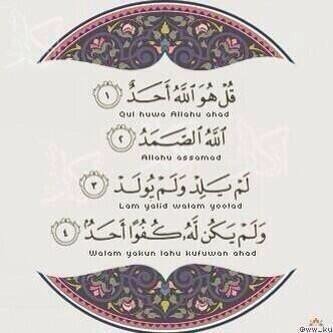 قُلْ هُوَ اللَّهُ أَحَدٌ ١
Qul huwa Allahu ahad
اللَّهُ الصَّمَدُ ٢
Allahu assamad
لَمْ يَلِدْ وَلَمْ يُولَدْ ٣
Lam yalid walam yoolad
وَلَمْ يَكُن لَّهُ كُفُوًا أَحَدٌ ٤
Walam yakun lahu kufuwan ahad